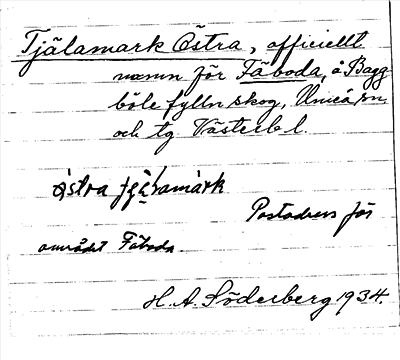 Tjälamark Östra, officiellt
namn för Fäboda, å Bagg
böle fylln skog, Umeå sn
och tg Västerb l.
östra fjälamark
Postadress för
området Fäboda.
H. A. Söderberg 1934.